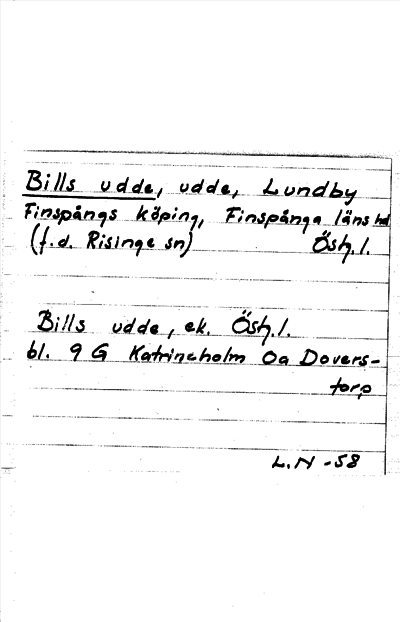 Bills udde, udde, Lundby
Finspångs köping, Finspånga läns hd
(f.d. Risinge sn) Östg.l.
Bills udde, ek. Östg.l.
bl. 9 G Katrineholm Oa Dovers-
torp
L.N -58